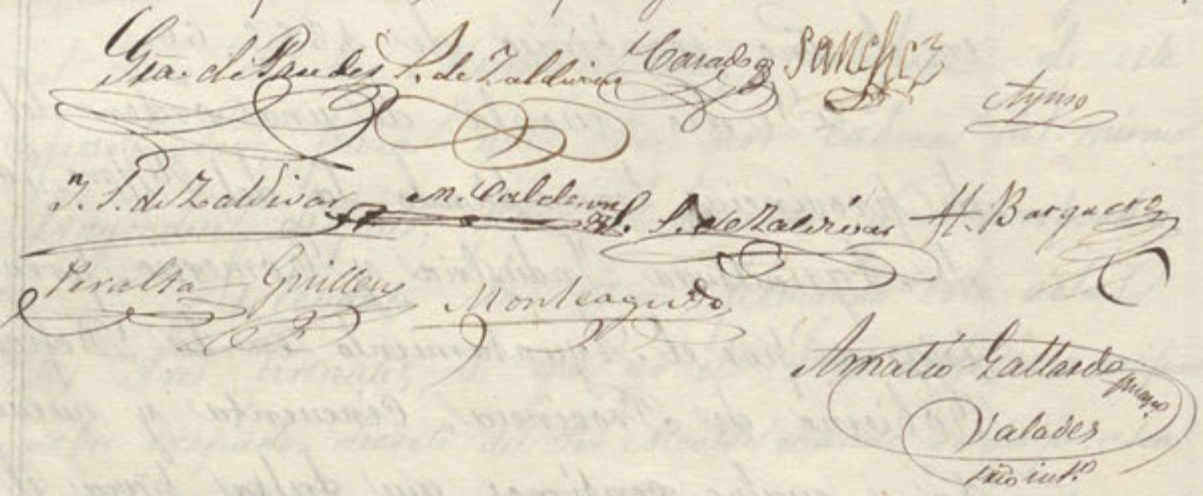 Gra. de Paredes S. de Zaldivar Sanchez
Ayuso
J. S. de Zaldivar M. Calderon L. S. de Zaldivar H. Barquero
Peralta Guillen Monteagudo
Amalio Gallardo
Valades
Srio int.º